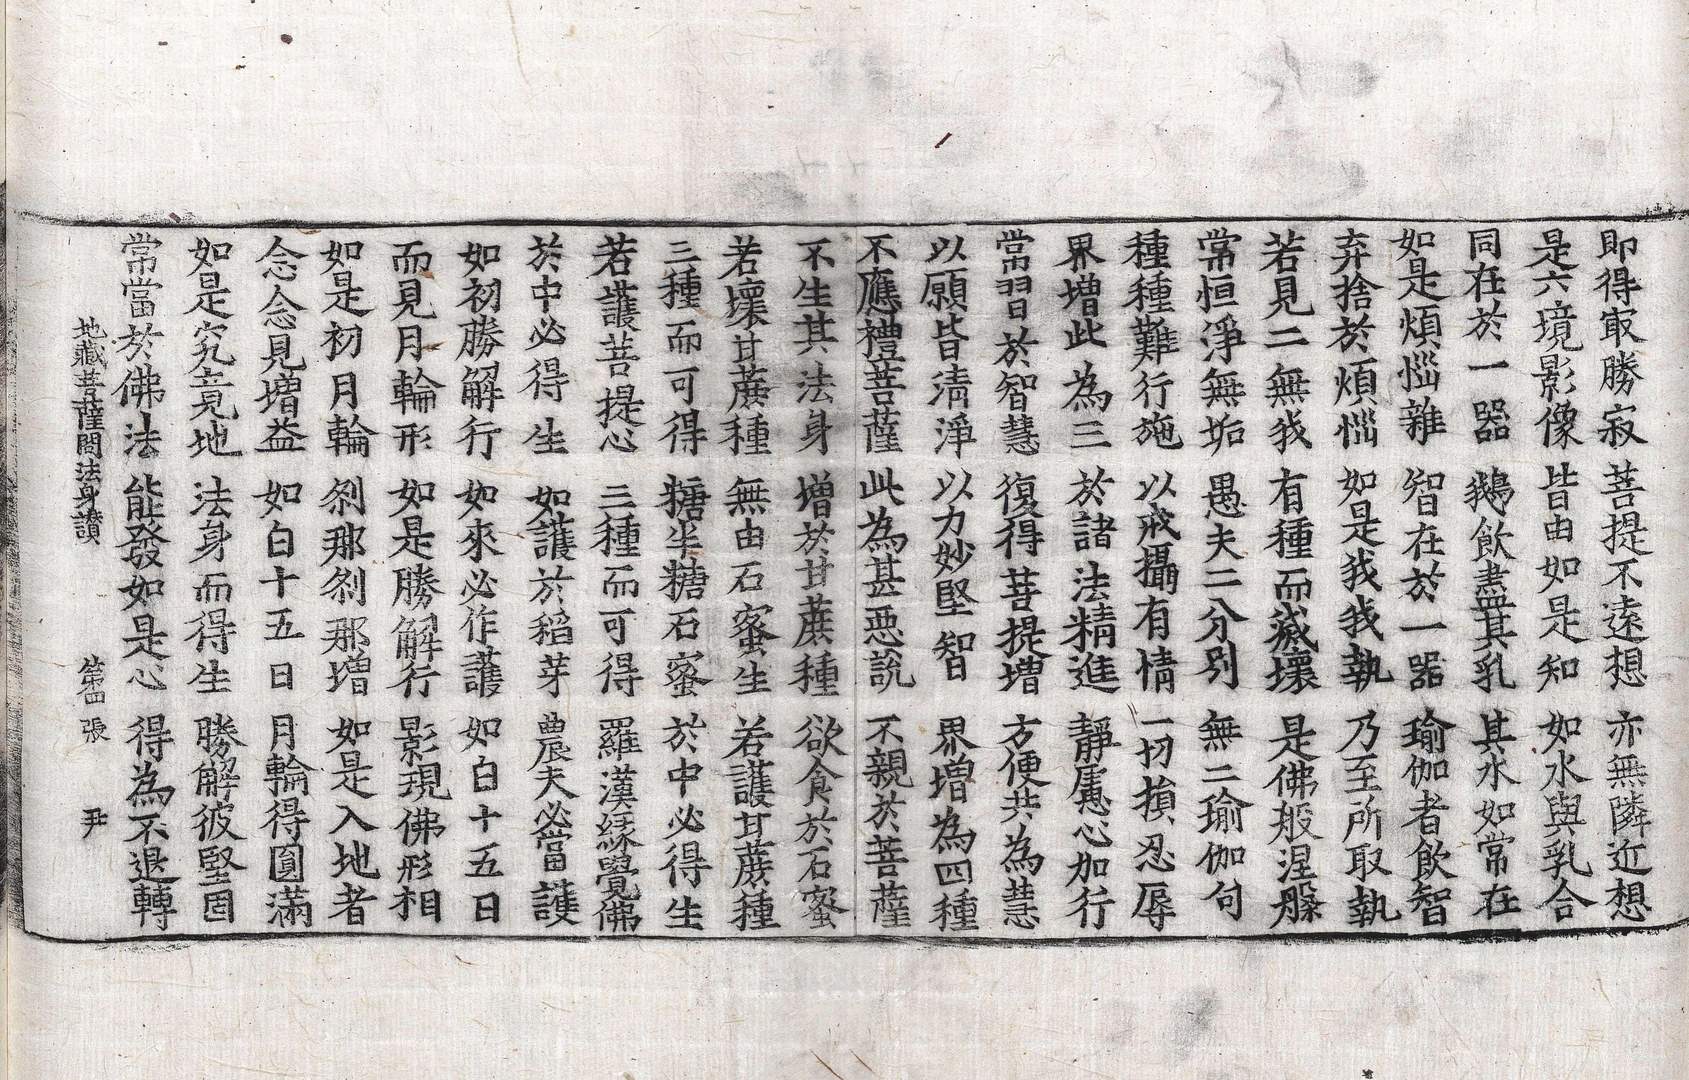 即得㝡勝寂　菩提不遠想　亦無隣近想
是六境影像　皆由如是知　如水與乳合
同在於一器　鵝飲盡其乳　其水如常在
如是煩惱雜　智在於一器　瑜伽者飲智
弃捨於煩惱　如是我我執　乃至所取執
若見二無我　有種而滅壞　是佛般涅槃
常恒淨無垢　愚夫二分別　無二瑜伽句
種種難行施　以戒攝有情　一切損忍辱
界增此為三　於諸法精進　靜慮心加行
常習於智慧　復得菩提增　方便共為慧
以願皆清淨　以力妙堅智　界增為四種
不應禮菩薩　此為甚惡說　不親於菩薩
不生其法身　增於甘蔗種　欲食於石蜜
若壞甘蔗種　無由石蜜生　若護甘蔗種
三種而可得　糖半糖石蜜　於中必得生
若護菩提心　三種而可得　羅漢緣覺佛
於中必得生　如護於稻芽　農夫必當護
如初勝解行　如來必作護　如白十五日
而見月輪形　如是勝解行　影現佛形相
如是初月輪　剎那剎那增　如是入地者
念念見增益　如白十五日　月輪得圓滿
如是究竟地　法身而得生　勝解彼堅固
常當於佛法　能發如是心　得為不退轉
地藏菩薩問法身讚　第四張　尹